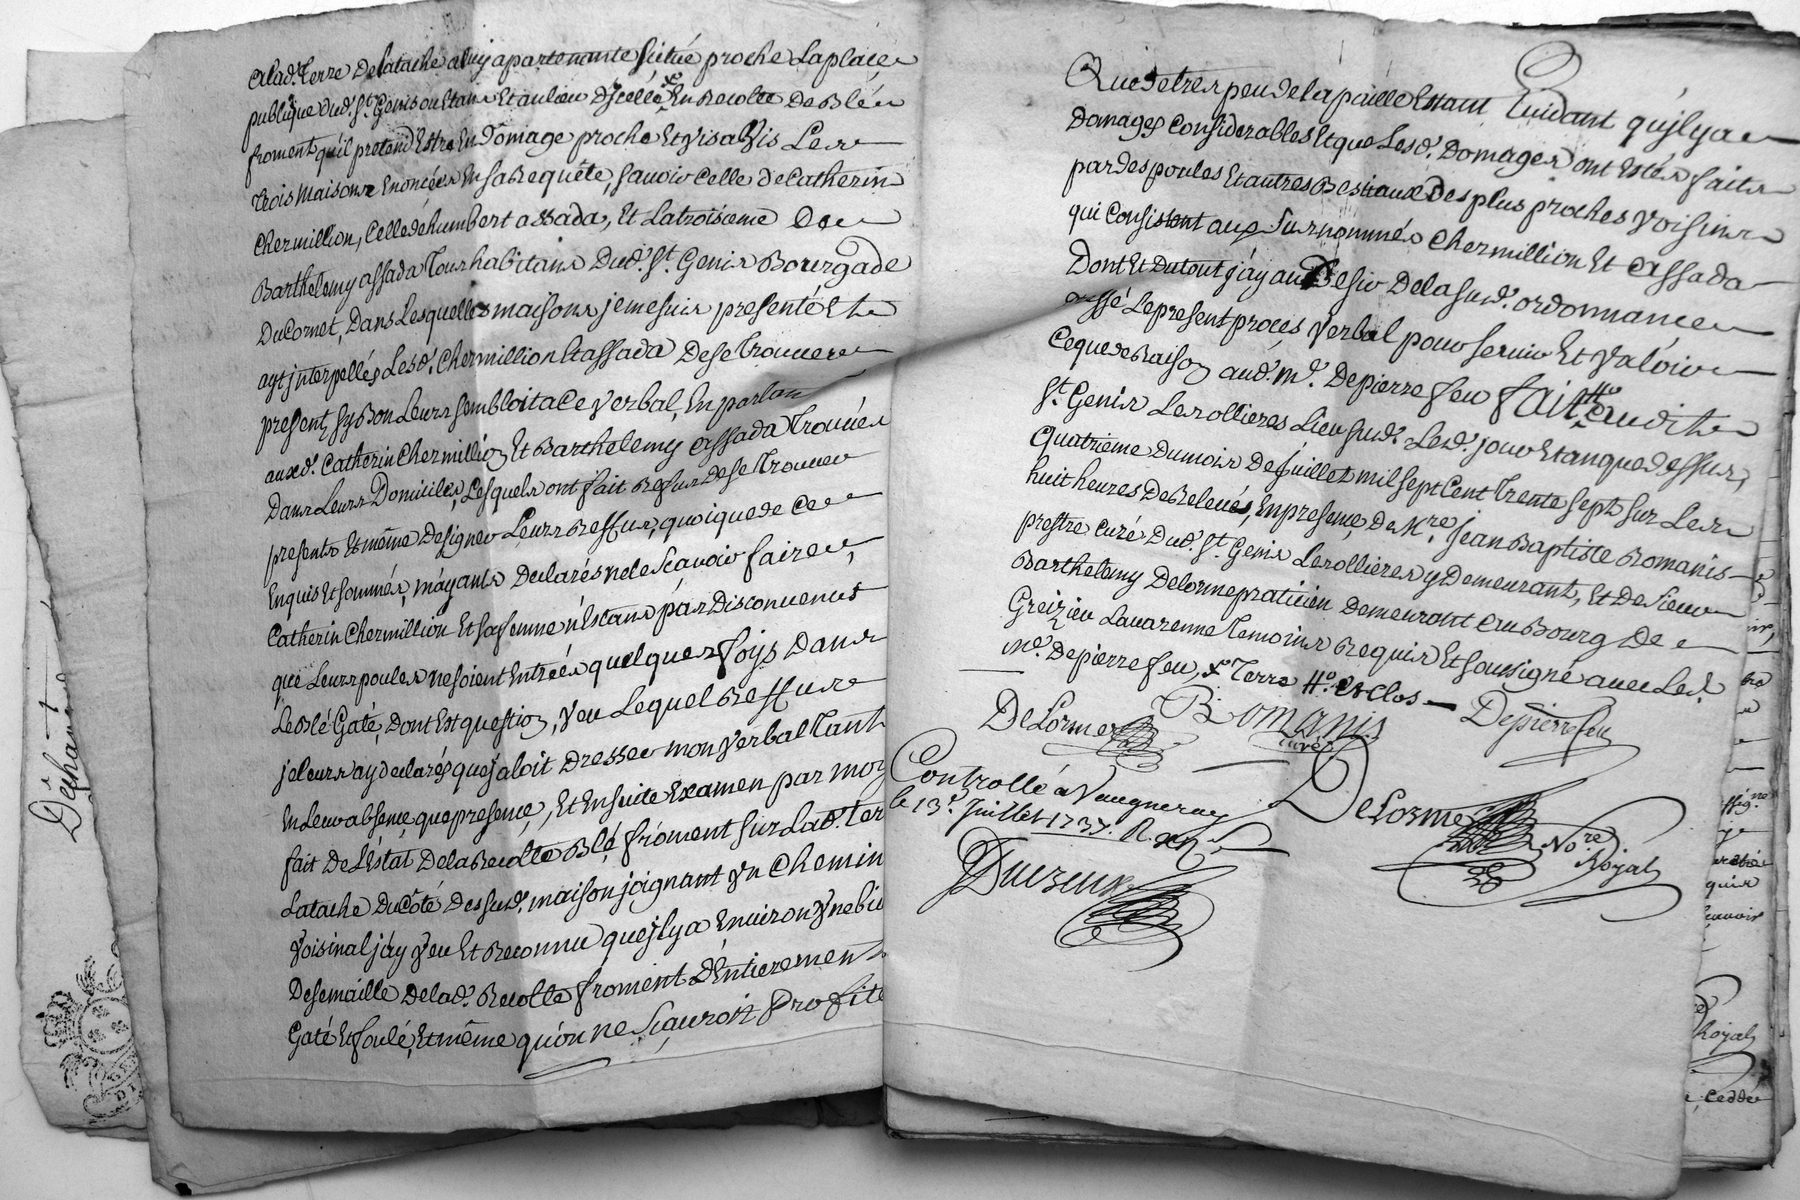 a lad.e Terre de latache a luy apartenante scitué proche la place
publique dud. St Genis ou etans et au lieu d'jcelle, en Recolte de Blé
froment qu'il pretend Estre en Domage proche et vis a vis Les
trois maisons Enoncées en sa Requête, savoir celle de Catherin
Chermillion, celle de humbert assada, Et la troisieme de
Barthelemy assada tous habitans dud. St. Genis Bourgade
du Cornet, Dans Lesquelles maisons je me suis presenté Et
ayt jnterpellés Lesd. Chermillion Et assada de se trouver
present sy Bon Leurs sembloit a ce verbal, En parlant
auxd. Catherin Chermillion Et Barthelemy assada trouvés
Dans Leurs Domiciles, Lesquels ont fait Refus de se trouver
presents Et même de signer Leurs Reffus, quoique de ce
Enquis Et sommés, m'ayants declarés ne le scavoir faire,
Catherin Chermillion Et sa femme n'Estans pas disconvenus
que Leurs poules ne soient Entrées quelques foys Dans
Le Blé Gaté, dont est question, veu Lequel Reffus
je leurs ay declarés que j'aloit dresser mon verbal tant
En Leur absence que presence, Et Ensuite Examen par moy
fait de L'Estat de la Recolte Blé froment sur lad. ter
Latache du Côté des susd. maison joignant un chemin
voisinal j'ay veu Et Reconnu qu'jl y a Environ une bi
De semaille de lad. Recolte froment d'Entierement
Gaté Et foulé, Et même qu'on ne sçauroit profite
Que de tres peu de la paille Estant Evidant qu'jl y a
Domages considerables Et que Lesd. Domages ont Estés faits
par des poules Et autres Bestiaux des plus proches voisins
qui consistent aux surnommés Chermillion Et assada
Dont Et du tout j'ay au Desir de la susd. ordonnance
Dressé Le present procès verbal pour servir Et valoir
Ce que de Raison aud. Me. Depierrefeu fait audit
St. Genis Les ollieres Lieu susd. Lesd. jour Et an que dessus,
quatrieme du mois de juillet mil sept cent trente sept sur Les
huit heures de Relevés, En presence, de Mre. Jean Baptiste Romanis
prestre curé dud. St. Genis Les ollieres y Demeurant, Et de sieur
Barthelemy Delorme praticien demeurant au Bourg de
Greizieu Lavarenne temoins Requis Et soussigné avec Led.
Me. Depierrefeu, x Terre # et Clos
DeLorme Romanis Depierrefeu
curé
Controllé à Vaugneray
le 13e. Juillet 1737.
DeLorme
No.re
Royal
Déchanet
Royal